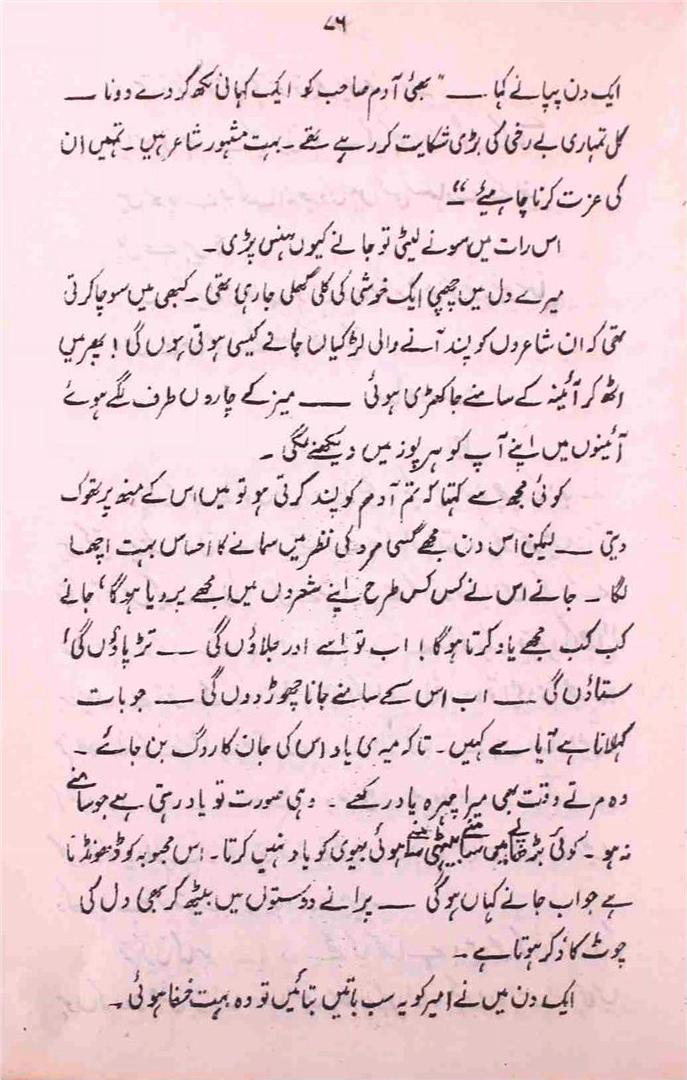 ۷۶
ایک دن پپا نے کہا ــــ "بھئی آدم صاحب کو ایک کہانی لکھ کر دے دو نا ــــ
کل تمہاری بے رخی کی بڑی شکایت کر رہے تھے۔ بہت مشہور شاعر ہیں۔ تمہیں ان
کی عزت کرنا چاہیئے ــــ"
اس رات میں سونے لیٹی تو جانے کیوں ہنس پڑی۔
میرے دل میں چھپی ایک خوشی کی کلی کھلی جا رہی تھی۔ کبھی میں سوچا کرتی
تھی کہ ان شاعروں کو پسند آنے والی لڑکیاں جانے کیسی ہوتی ہوں گی! پھر میں
اٹھ کر آئینہ کے سامنے جا کھڑی ہوئی ــــ میز کے چاروں طرف لگے ہوئے
آئینوں میں اپنے آپ کو ہر پوز میں دیکھنے لگی۔
کوئی مجھ سے کہتا کہ تم آدم کو پسند کرتی ہو تو میں اس کے منھ پر تھوک
دیتی ــــ لیکن اس دن مجھے کسی مرد کی نظر میں سمانے کا احساس بہت اچھا
لگا۔ جانے اس نے کس کس طرح اپنے شعروں میں مجھے پرویا ہوگا، جانے
کب کب مجھے یاد کرتا ہوگا! اب تو اسے اور جلاؤں گی ــــ تڑپاؤں گی،
ستاؤں گی ــــ اب اس کے سامنے جانا چھوڑ دوں گی ــــ جو بات
کہلانا ہے آپا سے کہیں۔ تاکہ میری یاد اس کی جان کا روگ بن جائے۔
وہ مرتے وقت بھی میرا چہرہ یاد رکھے۔ وہی صورت تو یاد رہتی ہے جو سامنے
نہ ہو۔ کوئی بڑھاپے میں سامنے بیٹھی ہوئی بیوی کو یاد نہیں کرتا۔ اس محبوبہ کو ڈھونڈتا
ہے جو اب جانے کہاں ہوگی ــــ پرانے دوستوں میں بیٹھ کر بھی دل کی
چوٹ کا ذکر ہوتا ہے۔
ایک دن میں نے امیر کو یہ سب باتیں بتائیں تو وہ بہت خفا ہوئی۔